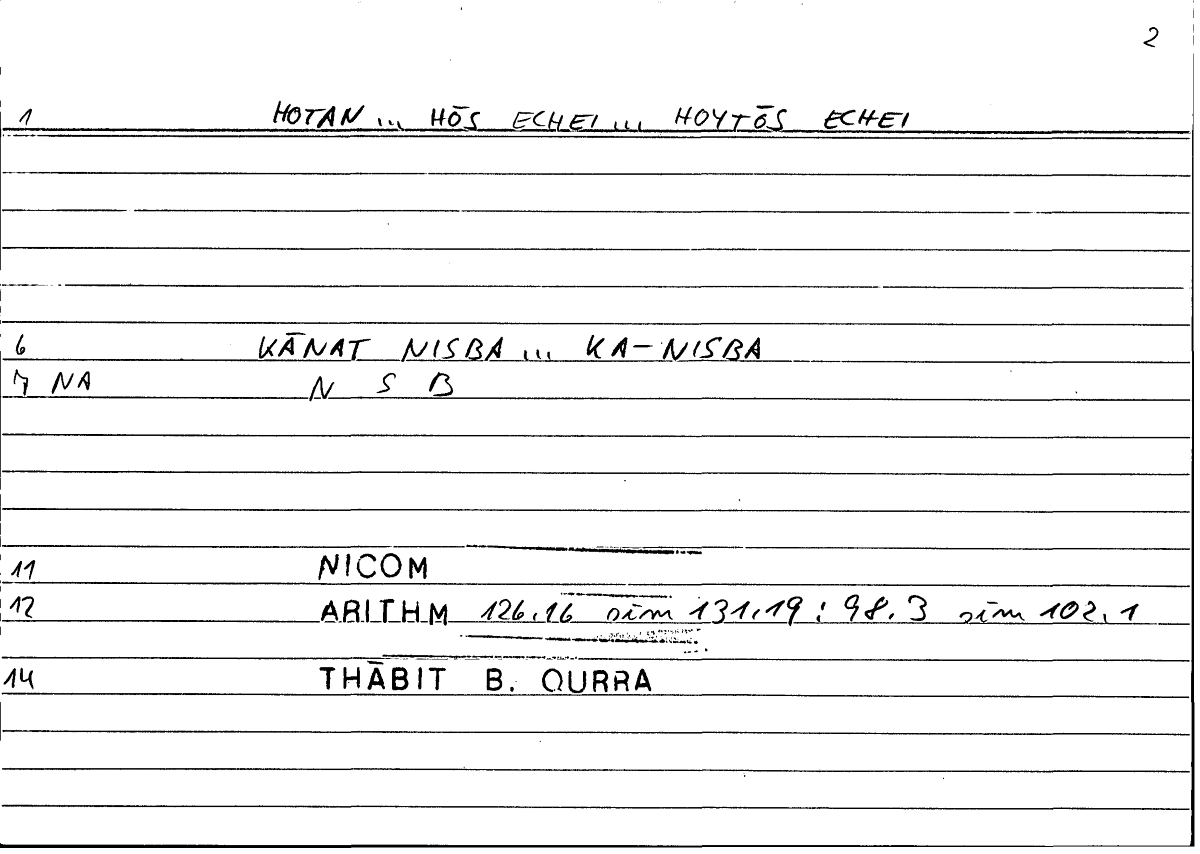 2
1 HOTAN ... HŌS ECHEI ... HOYTŌS ECHEI
6 KĀNAT NISBA ... KA-NISBA
7 NA N S B
11 NICOM
12 ARITHM 126.16 sim 131.19 : 98.3 sim 102.1
14 THĀBIT B. QURRA